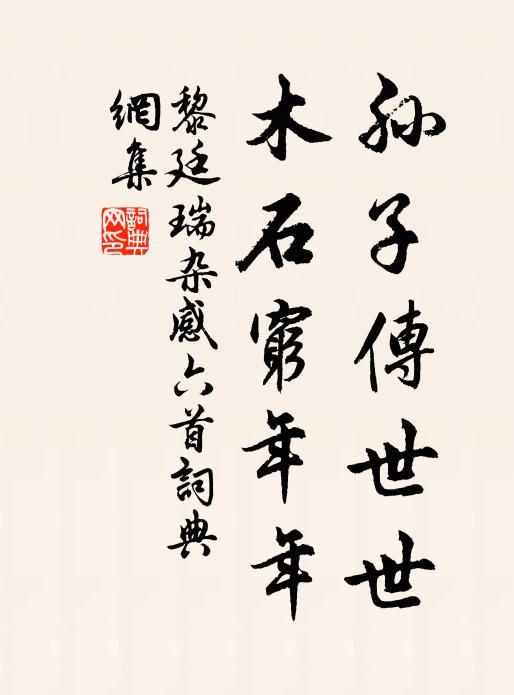 孙子傳世世
木石窮年年
黎廷瑞杂感六首詞典
網集
詞典
网印